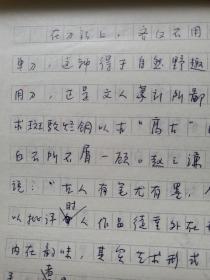 在刀法上，齐白石用
单刀，这种得于自然野趣
用刀，还是文人篆刻所鄙
求斑驳烂铜以求“高古”
白石所不屑一顾。赵之谦
说：“古人有笔尤有墨，今
以批评时人作品徒重外在
内在韵味，其实艺术形式